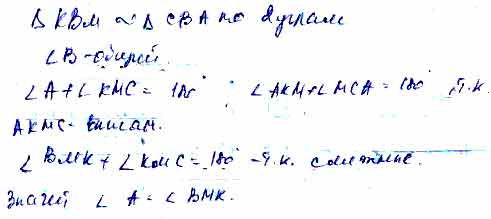 Δ KBM ∾ Δ CBA по 2 углам
∠B - общий.
∠A + ∠KMC = 180° ∠AKM + ∠MCA = 180°, т.к.
AKMC - вписан.
∠BMK + ∠KMC = 180° - т.к. смежные.
Значит ∠A = ∠BMK.